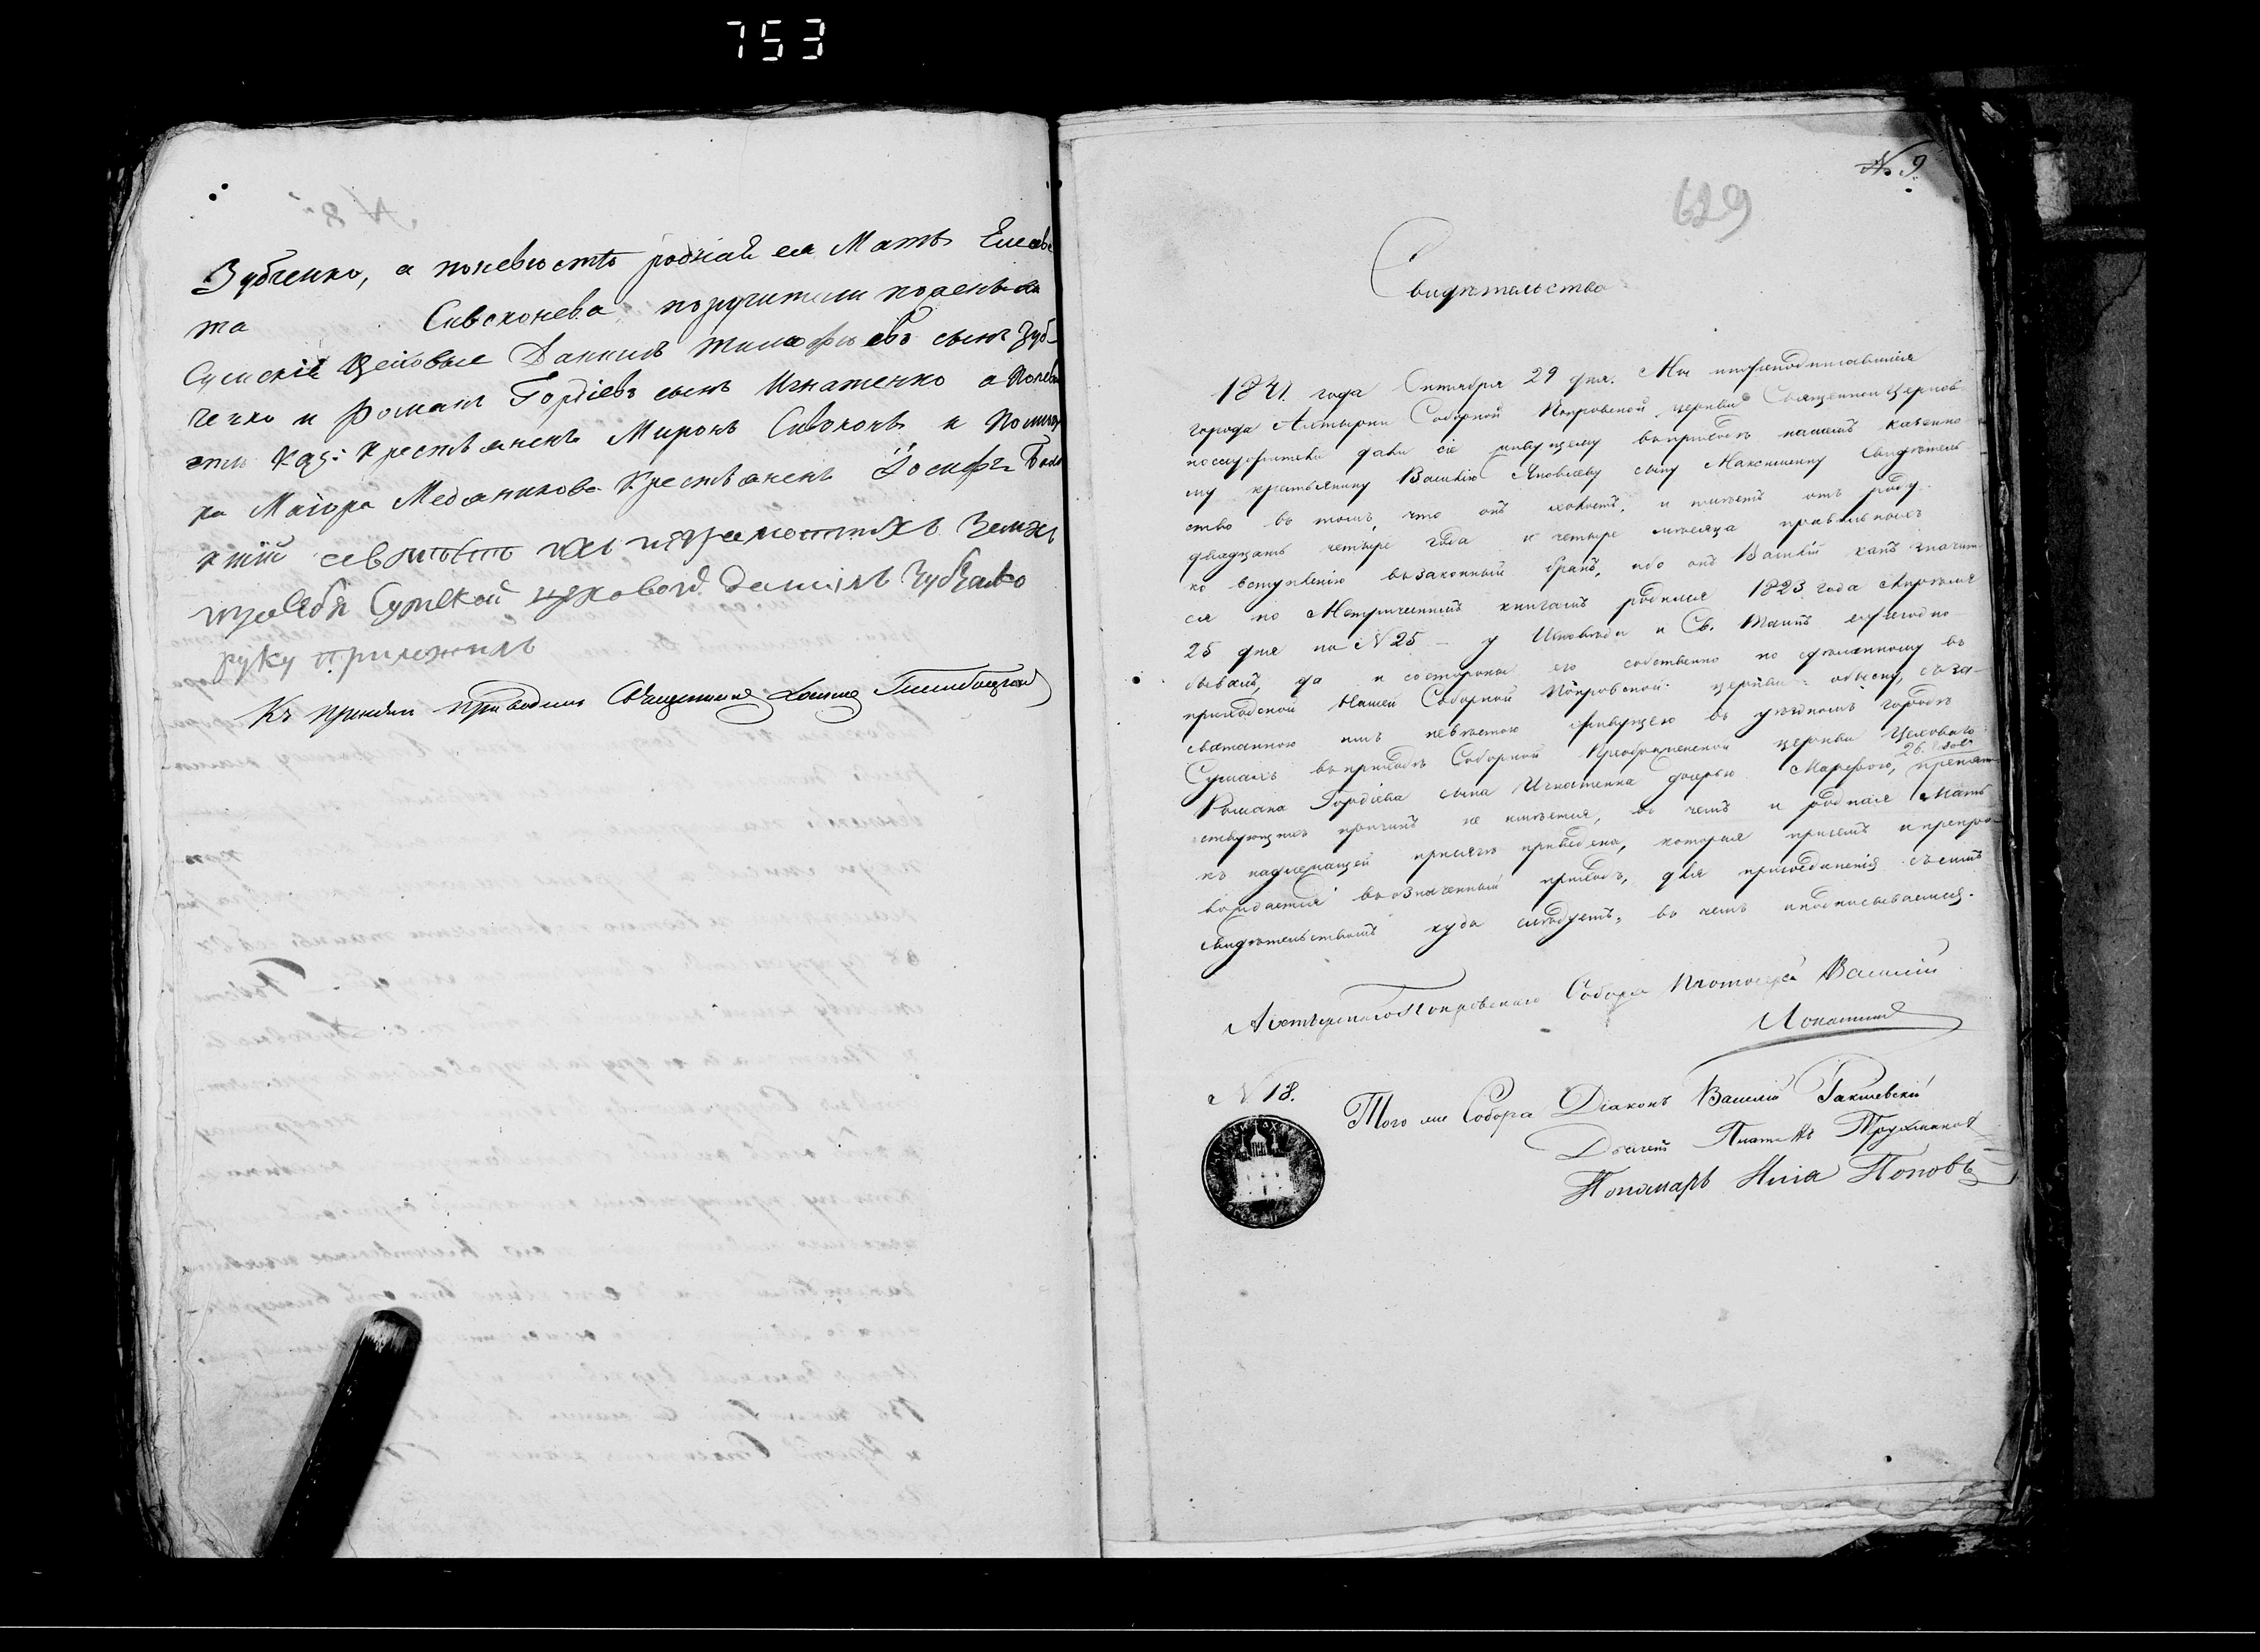 753
Зубченко, а поневѣстѣ родная ея Мать Елисаве
та Сивоконева поручители поженихѣ
Сумскіе Цеховые Даніилъ Тимофѣевъ сынъ Зуб-
ченко и Романъ Гордіевъ сынъ Игнатенко а Поневѣ
стѣ Каз: Крестьянинъ Миронъ Сивоконь и Помѣщи
ка Маіора Медяникова Крестьянинъ Іосифъ
вмѣсто ихъ неграмотныхъ
Сумской цеховой Даніилъ Зубченко
руку приложилъ
Къ присягѣ приводилъ Священникъ
№ 9.
629
Свидѣтельство
1847. года Октября 29 дня. Мы нижеподписавшіеся
города Ахтырки Соборной Покровской церкви Священноцерков-
нослужители дали сіе живущему въ приходѣ нашемъ казенно-
му крестьянину Василію Яковлеву сыну Максименку Свидѣтель-
ство въ томъ, что онъ холостъ, и имѣетъ отъ роду
двадцать четыре года и четыре мѣсяца правильныхъ
ко вступленію въ законный бракъ, ибо онъ Василій какъ значит-
ся по Метрическимъ книгамъ родился 1823 года Апрѣля
25 дня по № 25 – у Исповѣди и Св. Таинъ ежегодно
бывалъ, да и со стороны его собственно по сдѣланному въ
приходской нашей Соборной Покровской церкви обыску, съ за-
сватанною имъ невѣстою живущею въ уѣздномъ городѣ
Сумахъ въ приходѣ Соборной Преображенской церкви Цеховаго
Романа Гордіева сына Игнатенка дочерью Марфою, 26. препят-
ствующихъ причинъ не имѣется, въ чемъ и родная Мать
къ надлежащей присягѣ приведена, которая присяга и препро-
вождается въ означенный приходъ, для присоединенія съ симъ
свидѣтельствомъ куда слѣдуетъ, въ чемъ и подписываемся.
Ахтырскаго Покровскаго Собора Протоіерей Василій
№ 18.
Того же Собора Діаконъ Василій
Дьячекъ
Пономарь Илія Поповъ